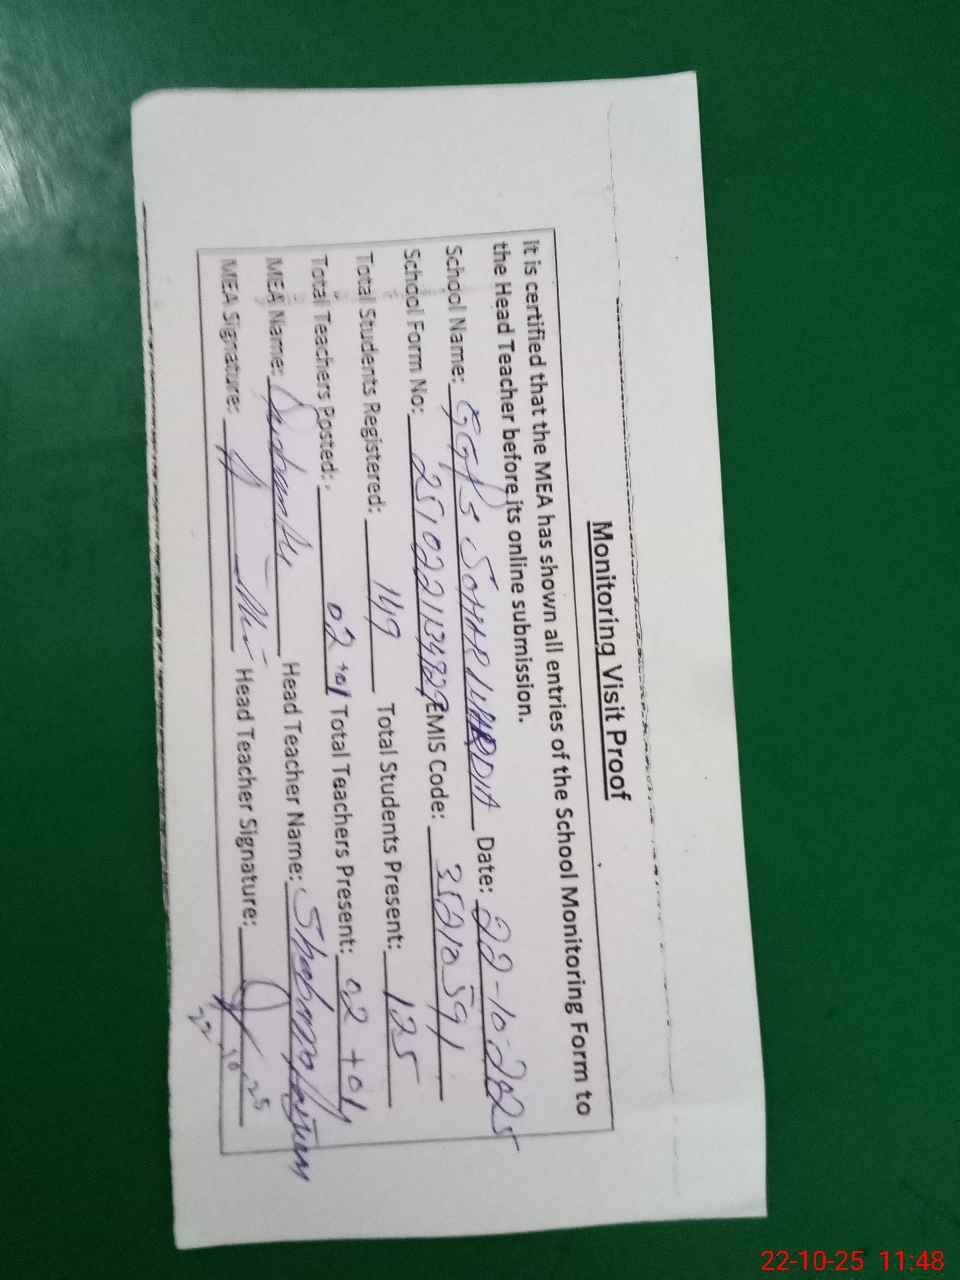 Monitoring Visit Proof
It is certified that the MEA has shown all entries of the School Monitoring Form to
the Head Teacher before its online submission.
School Name: GGPS Date: 22-10-2025
School Form No: EMIS Code: 35210591
Total Students Registered: 149 Total Students Present: 125
Total Teachers Posted: 02+01 Total Teachers Present: 02+01
MEA Name: Head Teacher Name:
MEA Signature: Head Teacher Signature:
22 10 25
22-10-25 11:48